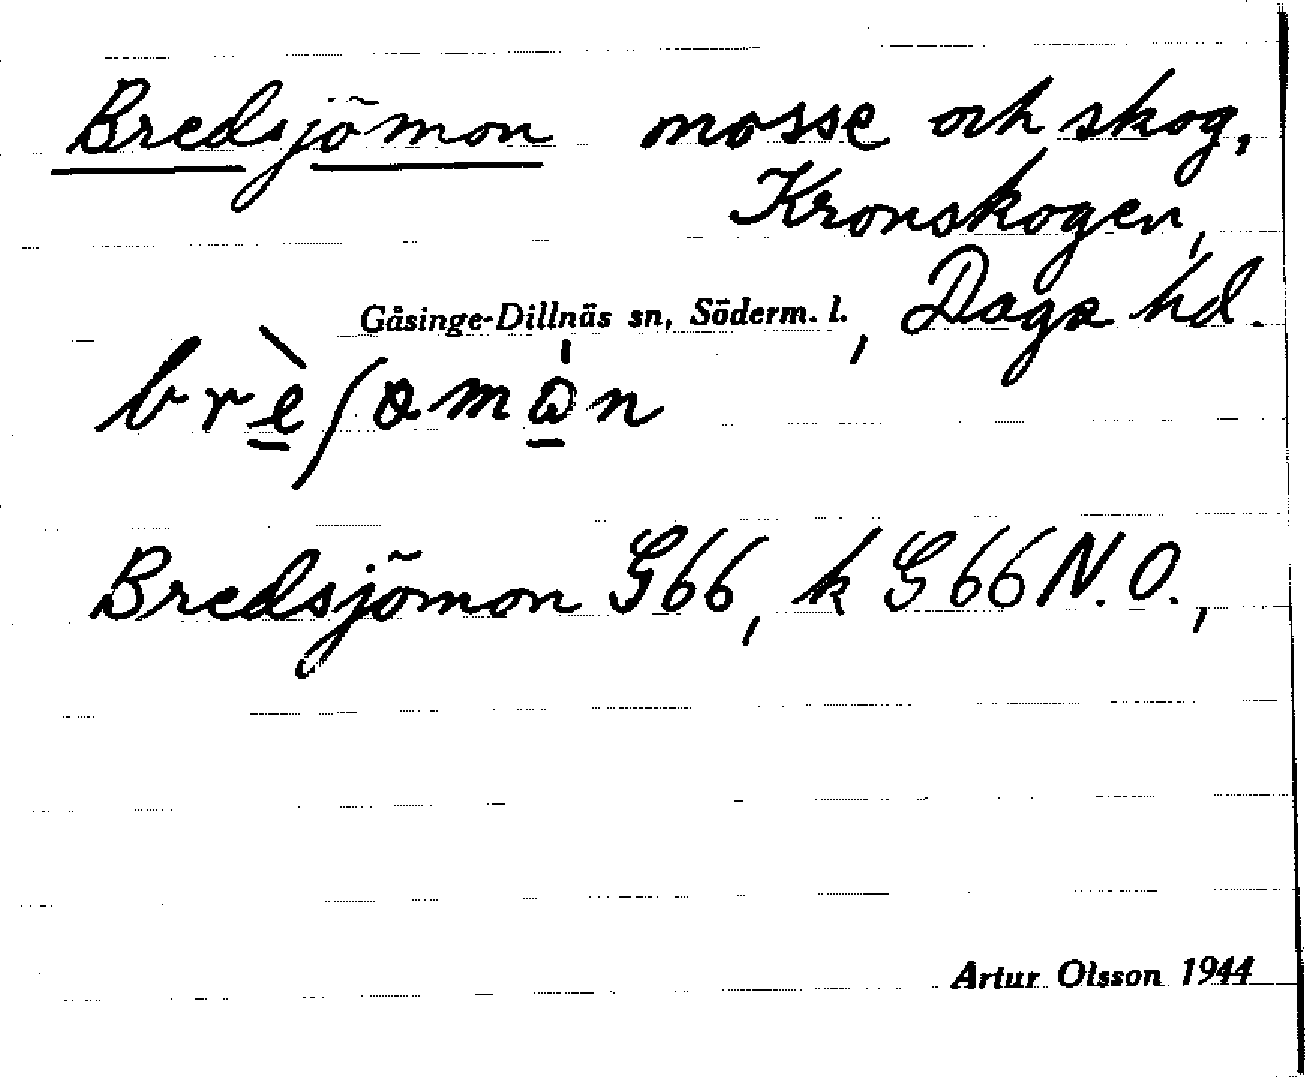 Bredsjömon mosse och skog,
Kronskogen,
Gåsinge-Dillnäs sn, Söderm. l., Daga hd.
Bredsjömon G66, k G66 N.O.,
Artur Olsson 1944